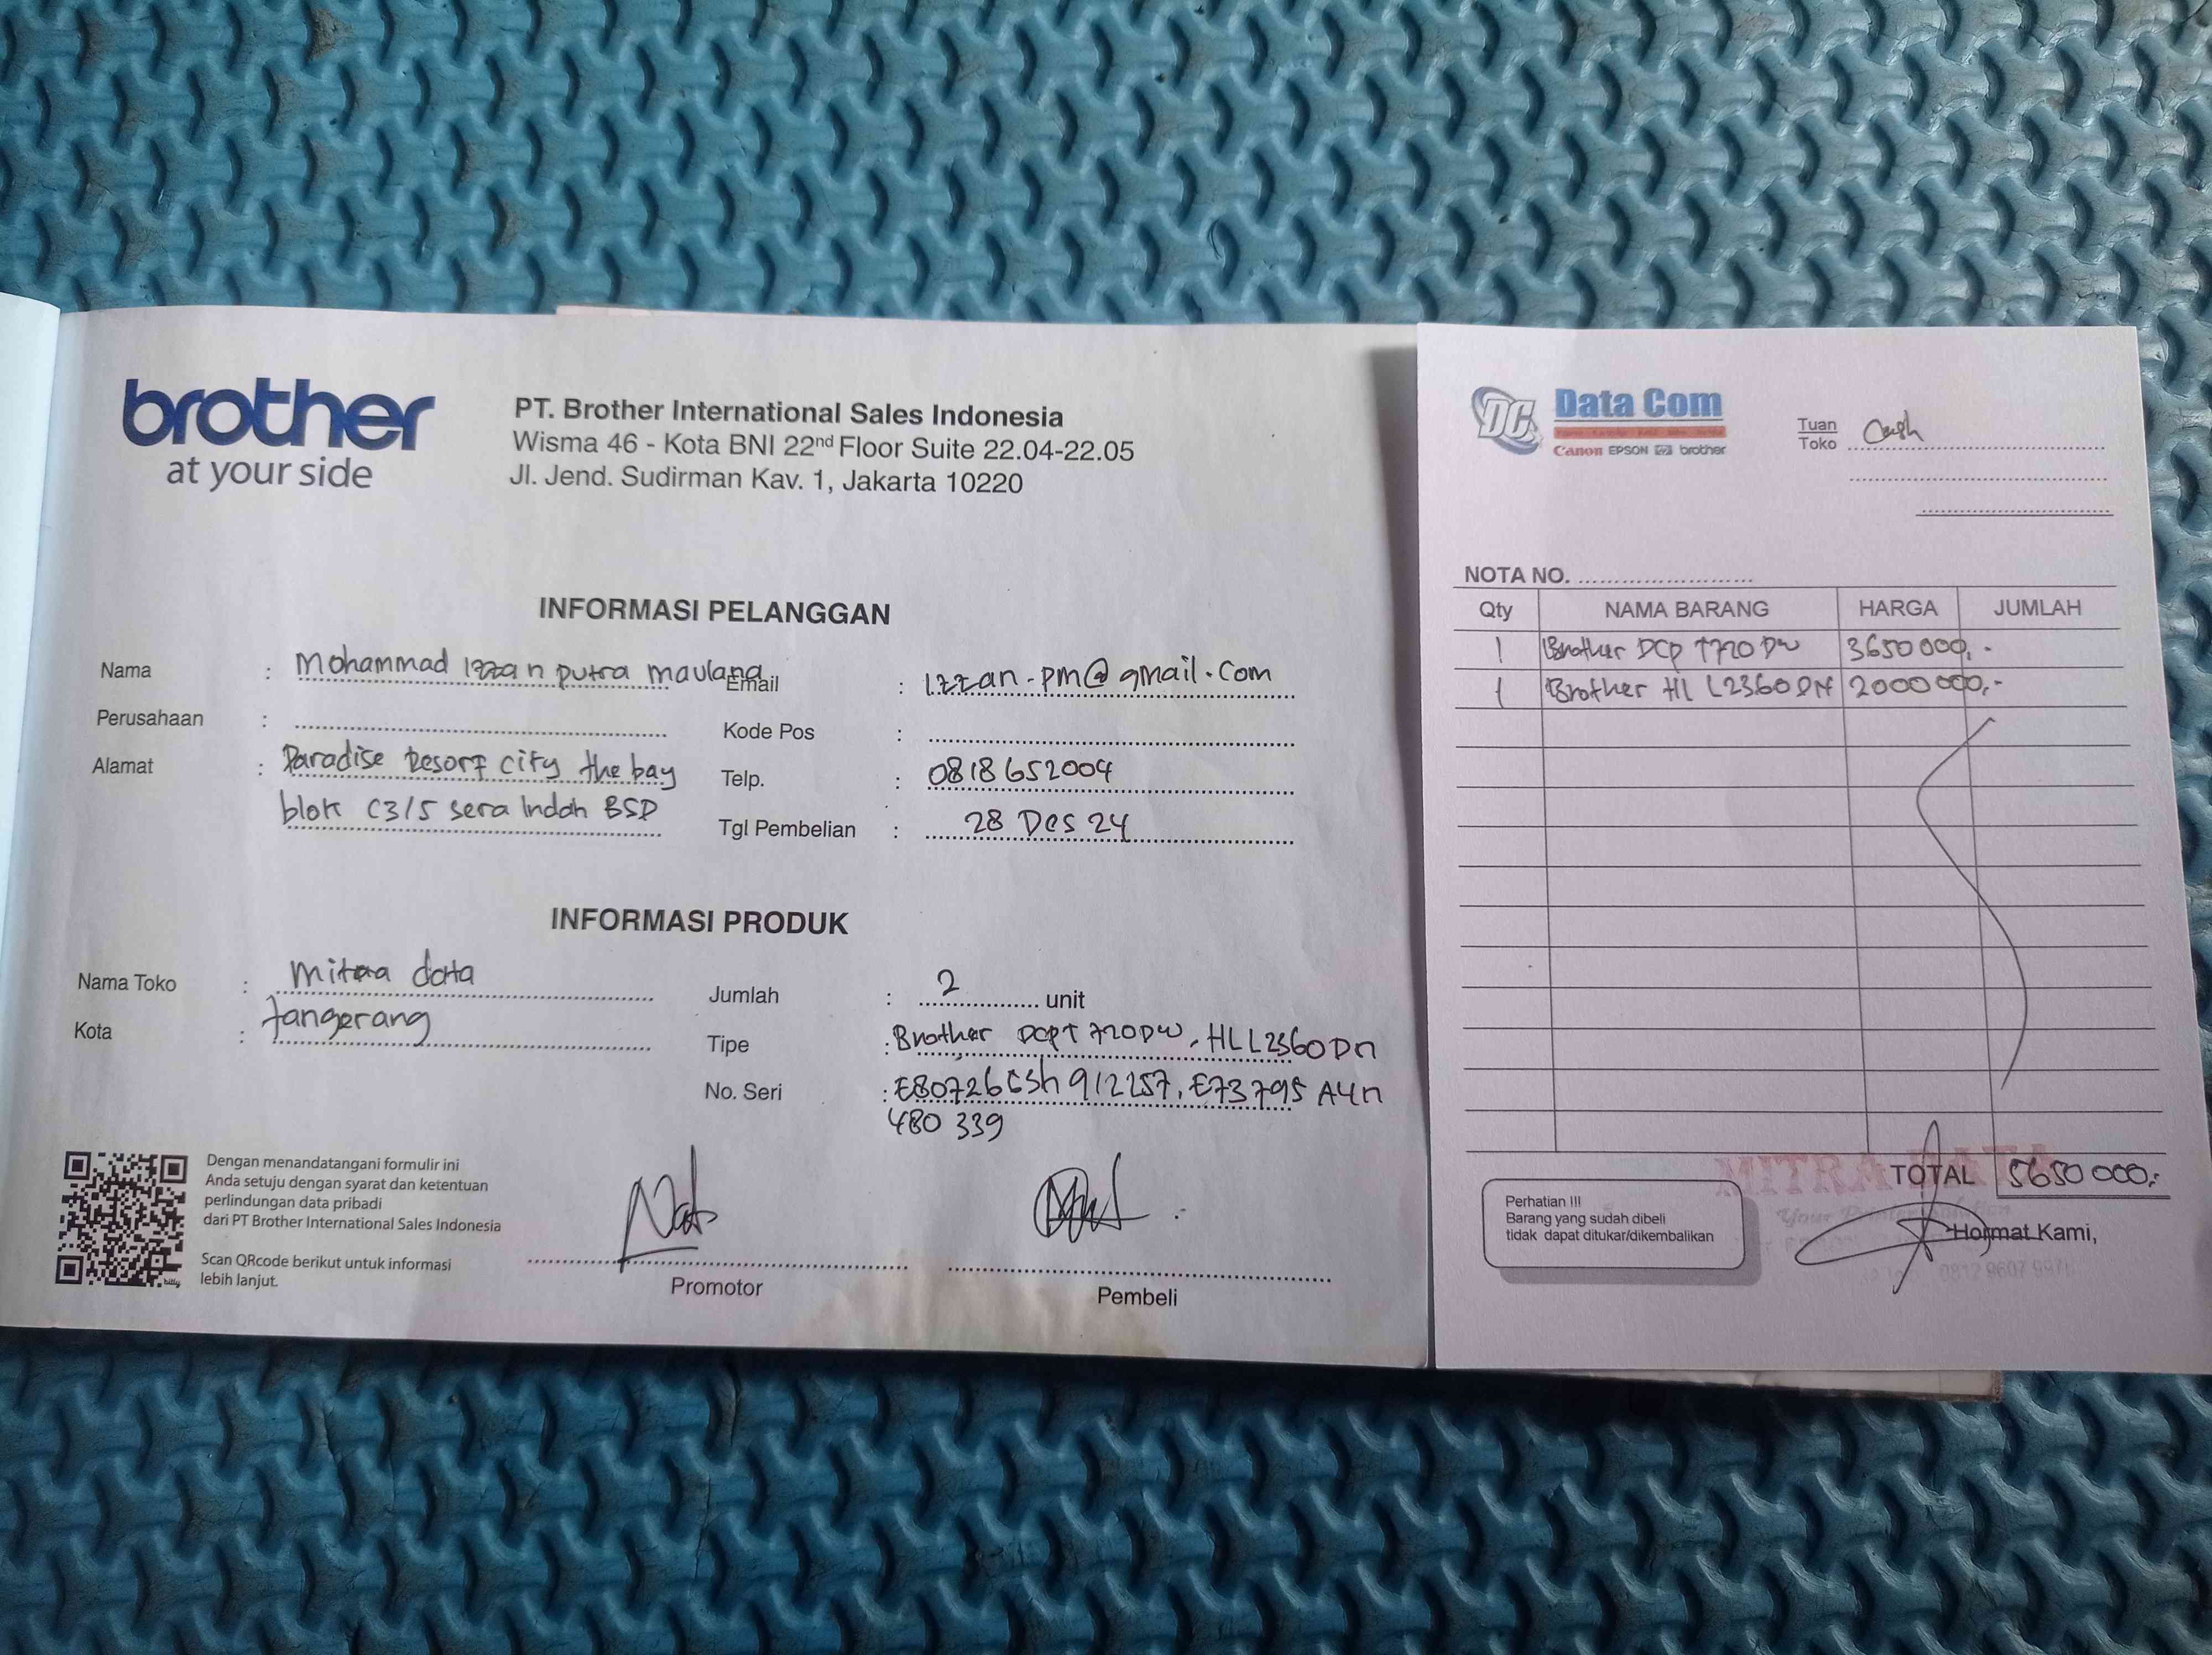 brother
at your side
PT. Brother International Sales Indonesia
Wisma 46 - Kota BNI 22nd Floor Suite 22.04-22.05
Jl. Jend. Sudirman Kav. 1, Jakarta 10220
INFORMASI PELANGGAN
Nama : Mohammad Izzan putra maulana
Perusahaan :
Alamat : Paradise Resort city the bay
blok C3/5 sera Indah BSD
Email : izzan.pm@gmail.com
Kode Pos :
Telp. : 0818652004
Tgl Pembelian : 28 Des 24
INFORMASI PRODUK
Nama Toko : mitra data
Kota : tangerang
Jumlah : 2 unit
Tipe : Brother DCPT720DW, HLL2360Dn
No. Seri : E80726 912257, E73795 A4n
480 339
Dengan menandatangani formulir ini
Anda setuju dengan syarat dan ketentuan
perlindungan data pribadi
dari PT Brother International Sales Indonesia
Scan QRcode berikut untuk informasi
lebih lanjut.
bitly
Promotor
Pembeli
DC
Data Com
Canon EPSON hp brother
Tuan
Toko Cash
NOTA NO.
Qty NAMA BARANG HARGA JUMLAH
1 Brother DCP T720DW 3650000,-
1 Brother HL L2360DN 2000000,-
TOTAL 5650000,-
MITRA DATA
Perhatian !!!
Barang yang sudah dibeli
tidak dapat ditukar/dikembalikan
Hormat Kami,
0812 9607